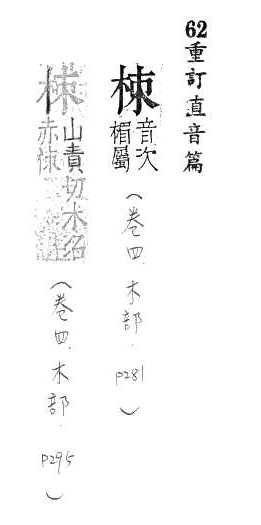 62重訂直音篇
栜 音次楣屬（卷四．木部．p281）
栜 山責切木名赤栜（卷四．木部．p295）